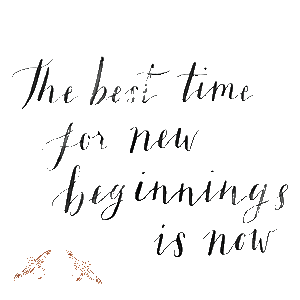 The best time
for new
beginnings
is now